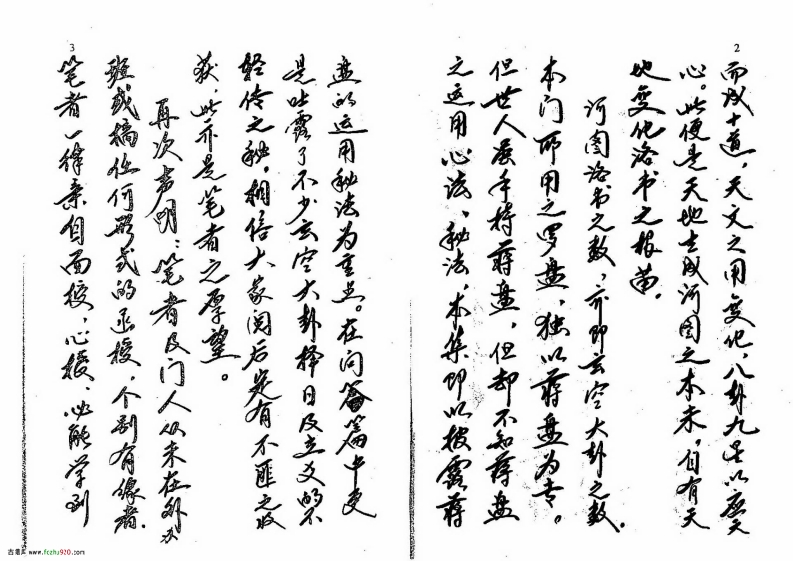 2
而成十道，天文之用变化，八卦九星以应天
心。此便是天地生成河图之本末，自有天
地变化洛书之根蒂。
河图洛书之数，亦即玄空大卦之数。
本门所用之罗盘，独以蒋盘为专。
但世人虽手持蒋盘，但却不知蒋盘
之运用心法、秘法，本集即以披露蒋
3
盘的运用秘法为重点。在问答篇中更
是吐露了不少玄空大卦择日及立爻的不
轻传之秘，相信大家阅后定有不匪之收
获，此亦是笔者之厚望。
再次声明：笔者及门人从来在外办
班或搞任何形式的函授，个别有缘者，
笔者一律亲自面授、心授，必能学到
古籍 www.fczhu920.com